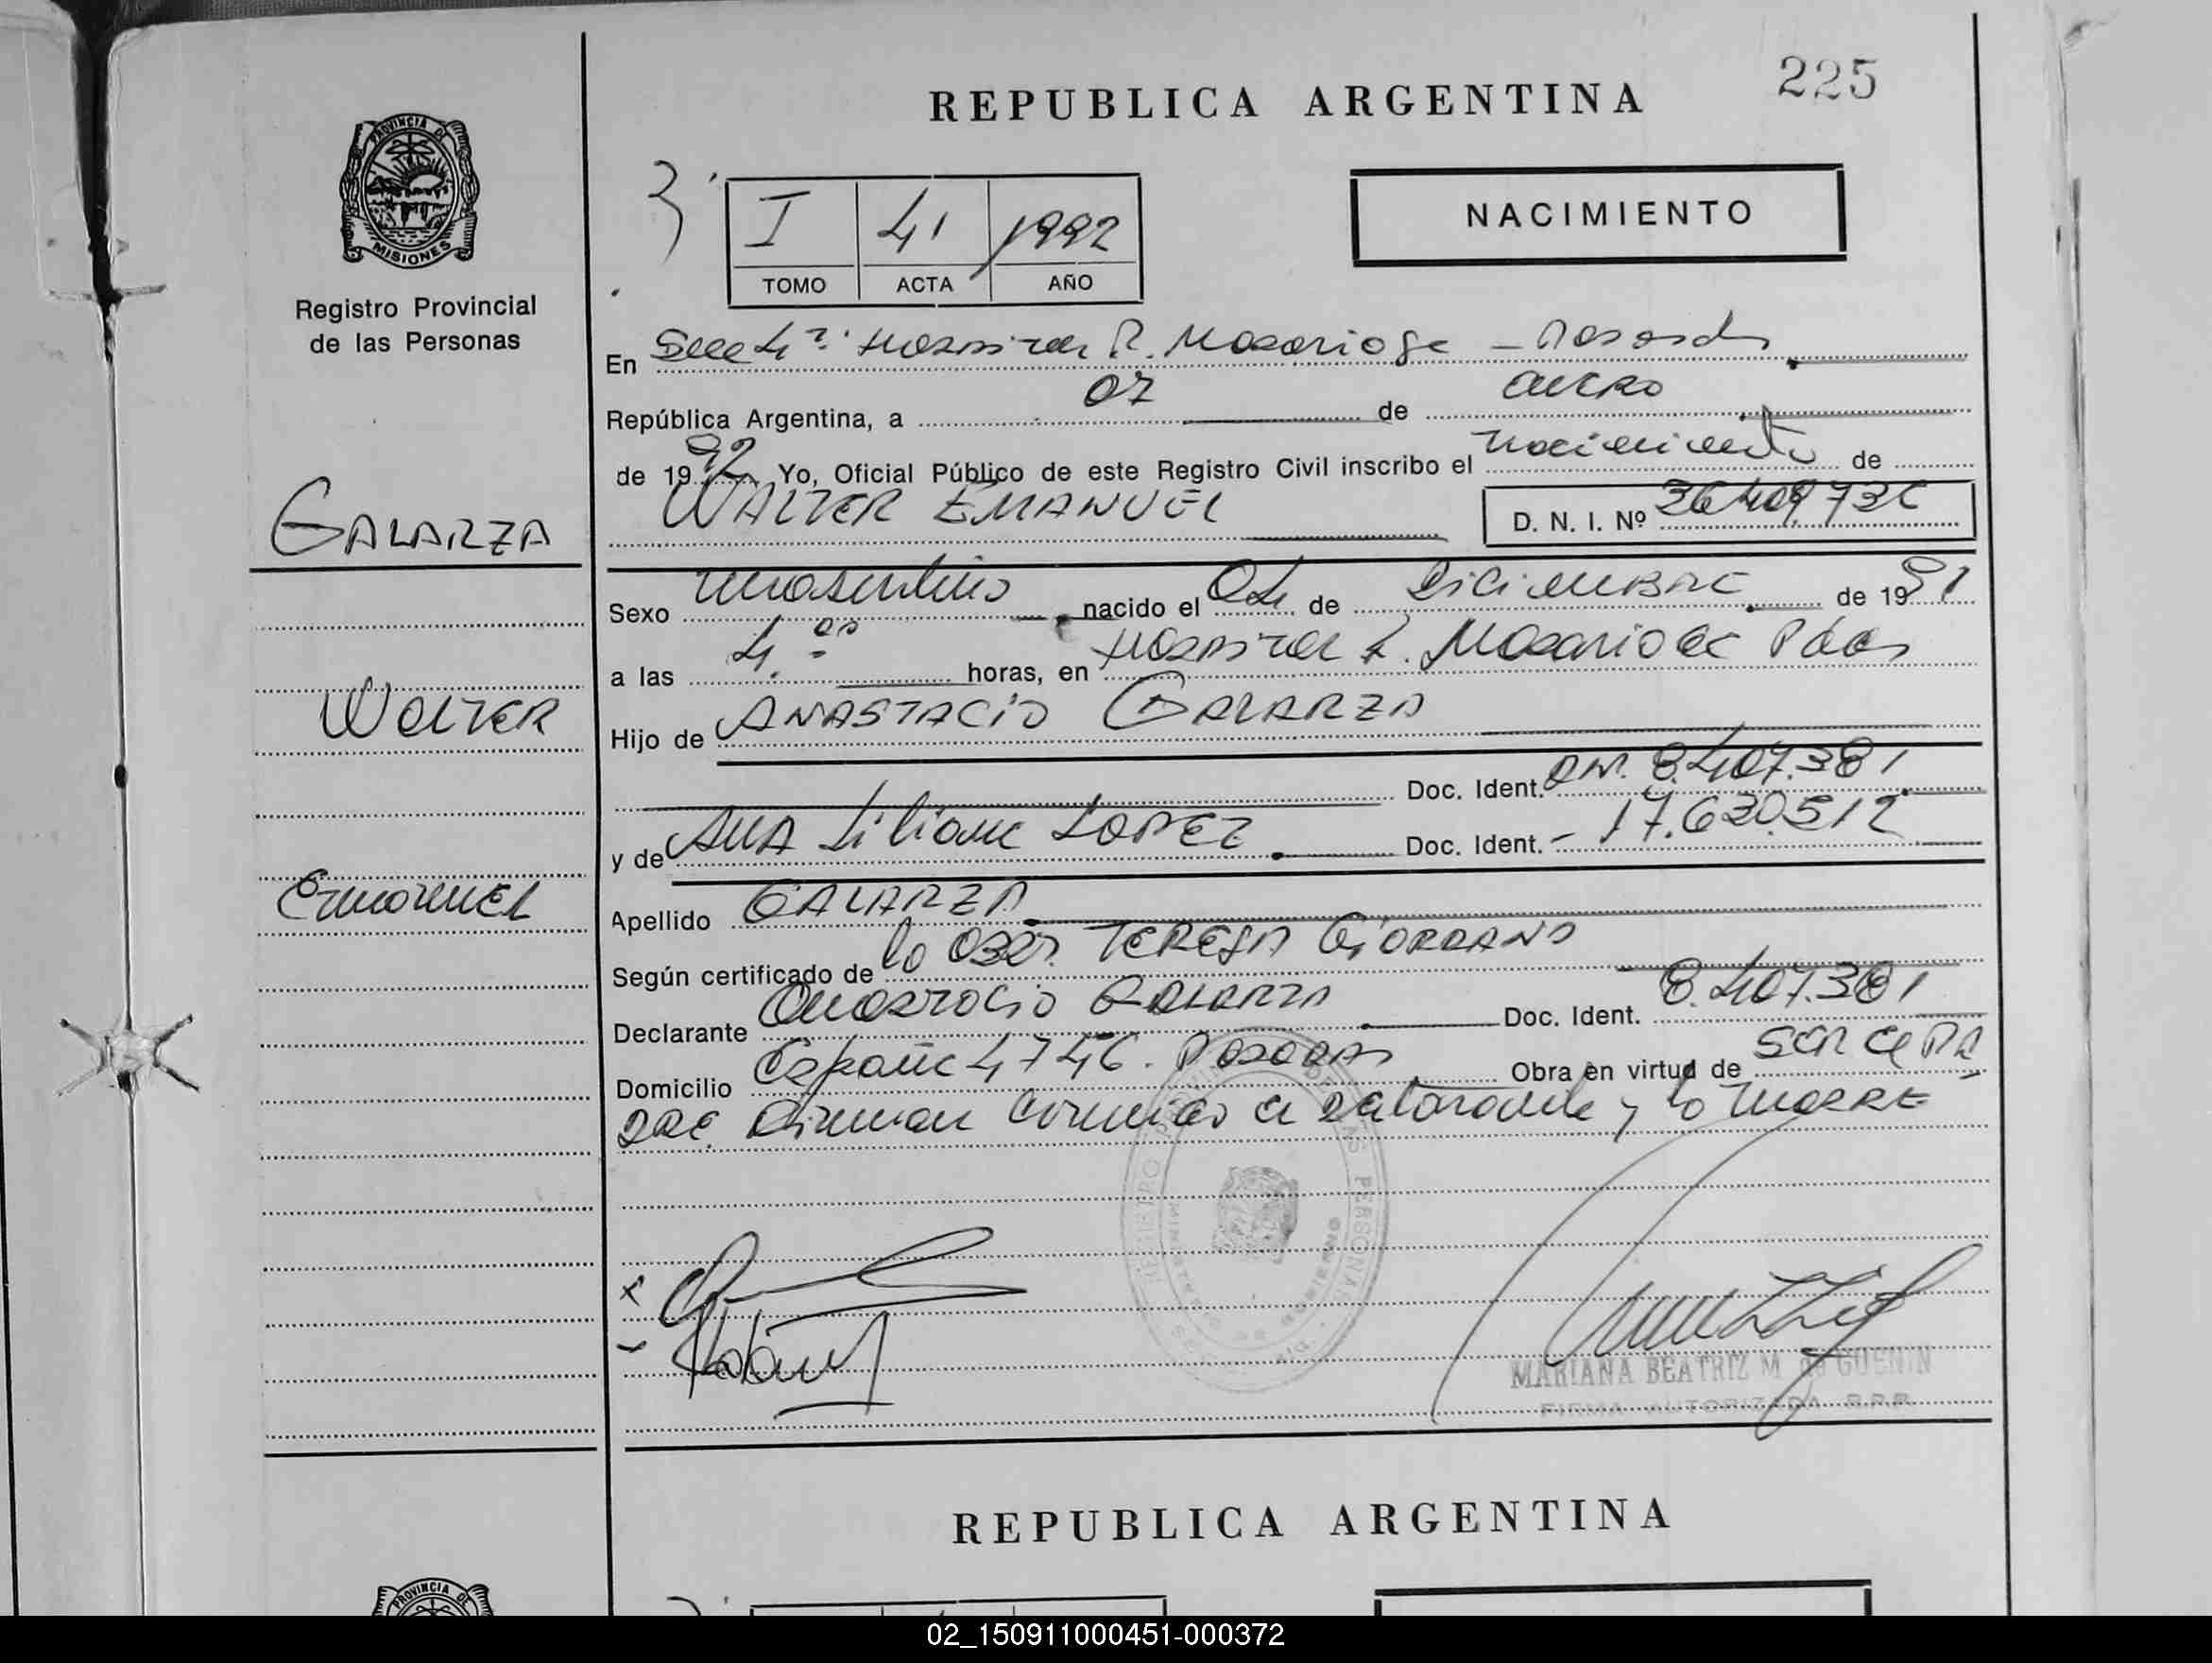 225
REPUBLICA ARGENTINA
PROVINCIA DE
MISIONES
Registro Provincial
de las Personas
I 41 1992
TOMO ACTA AÑO
NACIMIENTO
En Secc 4ª Hospital R. Madariaga - Posadas
República Argentina, a 07 de enero
de 1992 Yo, Oficial Público de este Registro Civil inscribo el nacimiento de
WALTER EMANUEL
D. N. I. Nº
GALARZA
Sexo masculino nacido el 04 de Diciembre de 1991
a las 4.00 horas, en Hospital R. Madariaga de Pdas
WALTER
Hijo de ANASTACIO GALARZA
Doc. Ident. 8.407.381
y de ANA Liliana LOPEZ Doc. Ident. 17.630.512
Emanuel
Apellido GALARZA
Según certificado de la Obst. TERESA GIORDANO
Declarante Anastacio GALARZA Doc. Ident. 8.407.381
Domicilio España 4746. Posadas Obra en virtud de SER el PA
DRE. Firman conmigo el declarante y la MADRE
REGISTRO PERSONAS
MARIANA BEATRIZ M de GUENIN
FIRMA AUTORIZADA R.P.P.
REPUBLICA ARGENTINA
PROVINCIA DE
02_150911000451-000372